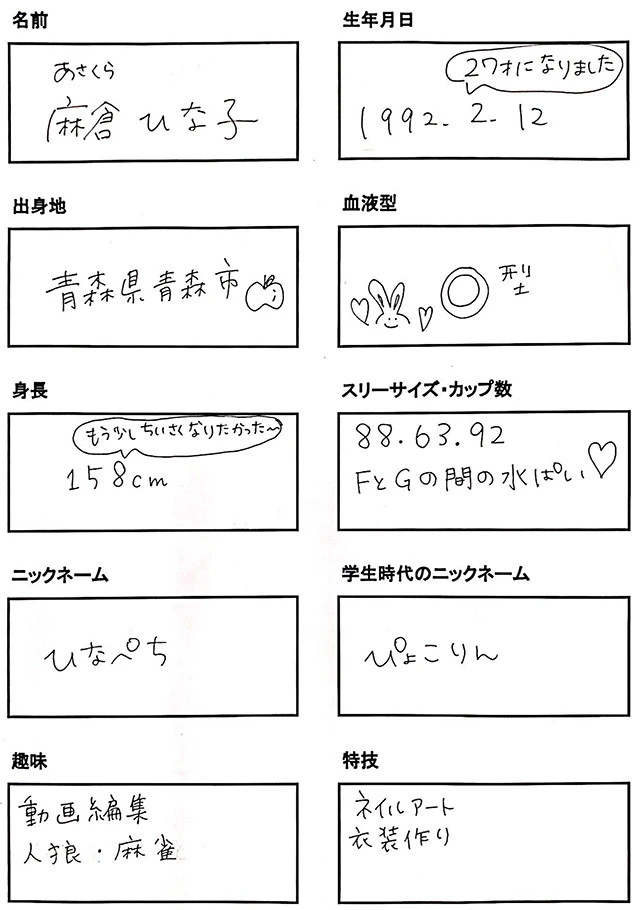 名前
あさくら
麻倉 ひな子
生年月日
27才になりました
1992.2.12
出身地
青森県青森市
血液型
O型
身長
もう少しちいさくなりたかった〜
158cm
スリーサイズ・カップ数
88.63.92
FとGの間の水ぱい♡
ニックネーム
ひなぺち
学生時代のニックネーム
ぴょこりん
趣味
動画編集
人狼・麻雀
特技
ネイルアート
衣装作り